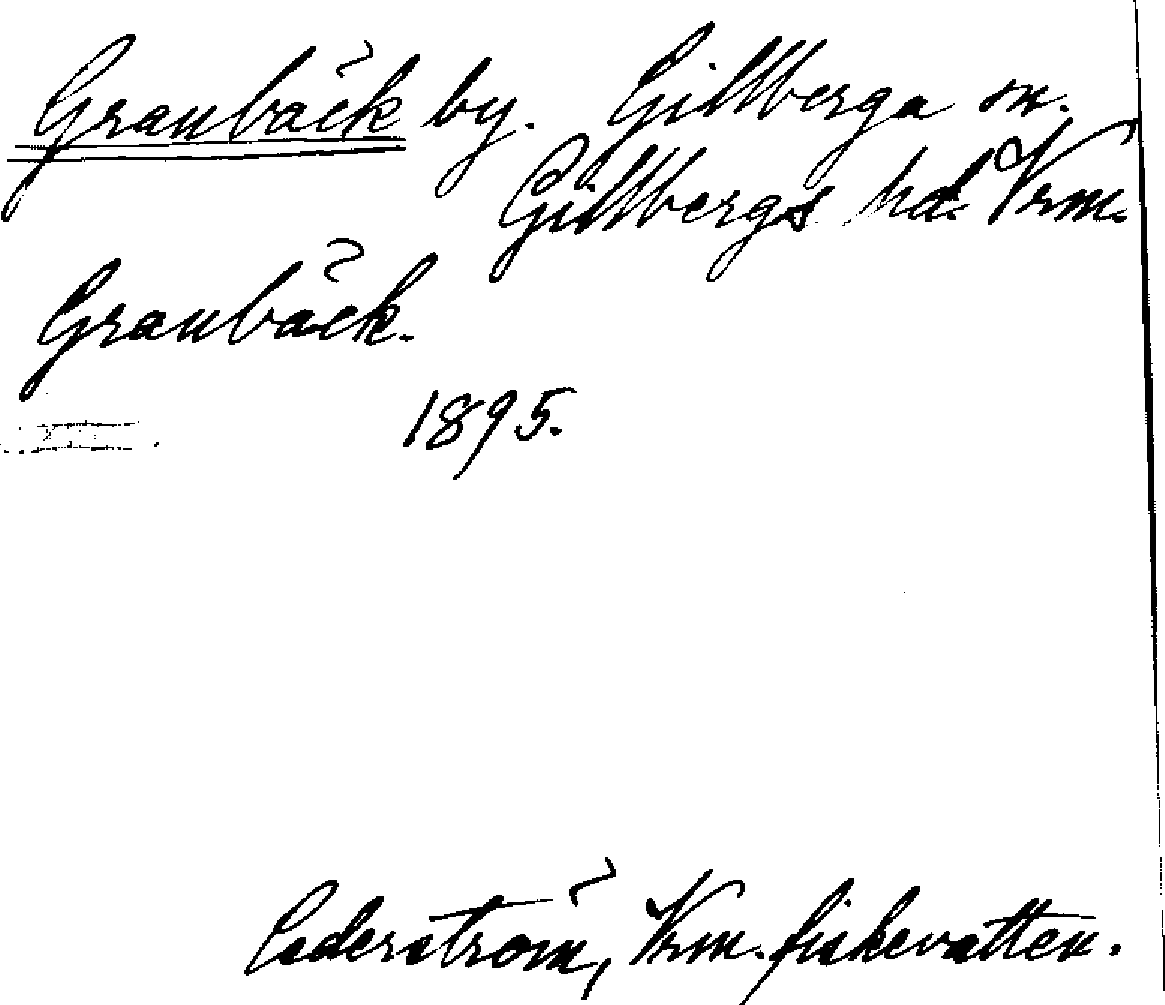 Granbäck by. Gillberga sn.
Gillbergs hd. Vrm.
Granbäck.
1895.
Cederström, Vrm. fiskevatten.